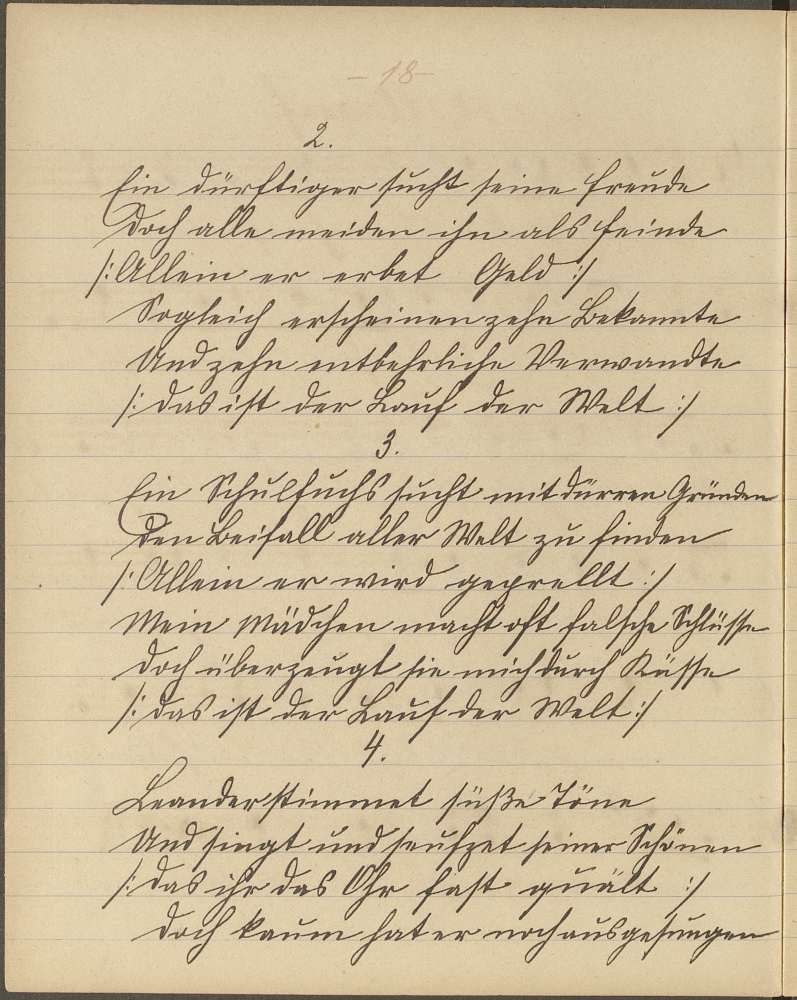 - 18 -
2.
Ein dürftiger sucht seine Freude
Doch alle meiden ihn als Feinde
/: Allein er erbet Geld :/
Sogleich erscheinen zehn Bekannte
Und zehn entbehrliche Verwandte
/: das ist der Lauf der Welt :/
3.
Ein Schulfuchs sucht mit dürren Gründen
Den Beifall aller Welt zu finden
/: Allein er wird geprellt :/
Mein Mädchen macht oft falsche Schlüsse
Doch überzeugt sie mich durch Küsse
/: das ist der Lauf der Welt :/
4.
Leander stimmet süße Töne
Und singt und seufzet seiner Schönen
/: das ihr das Ohr fast quält :/
Doch kaum hat er noch ausgesungen